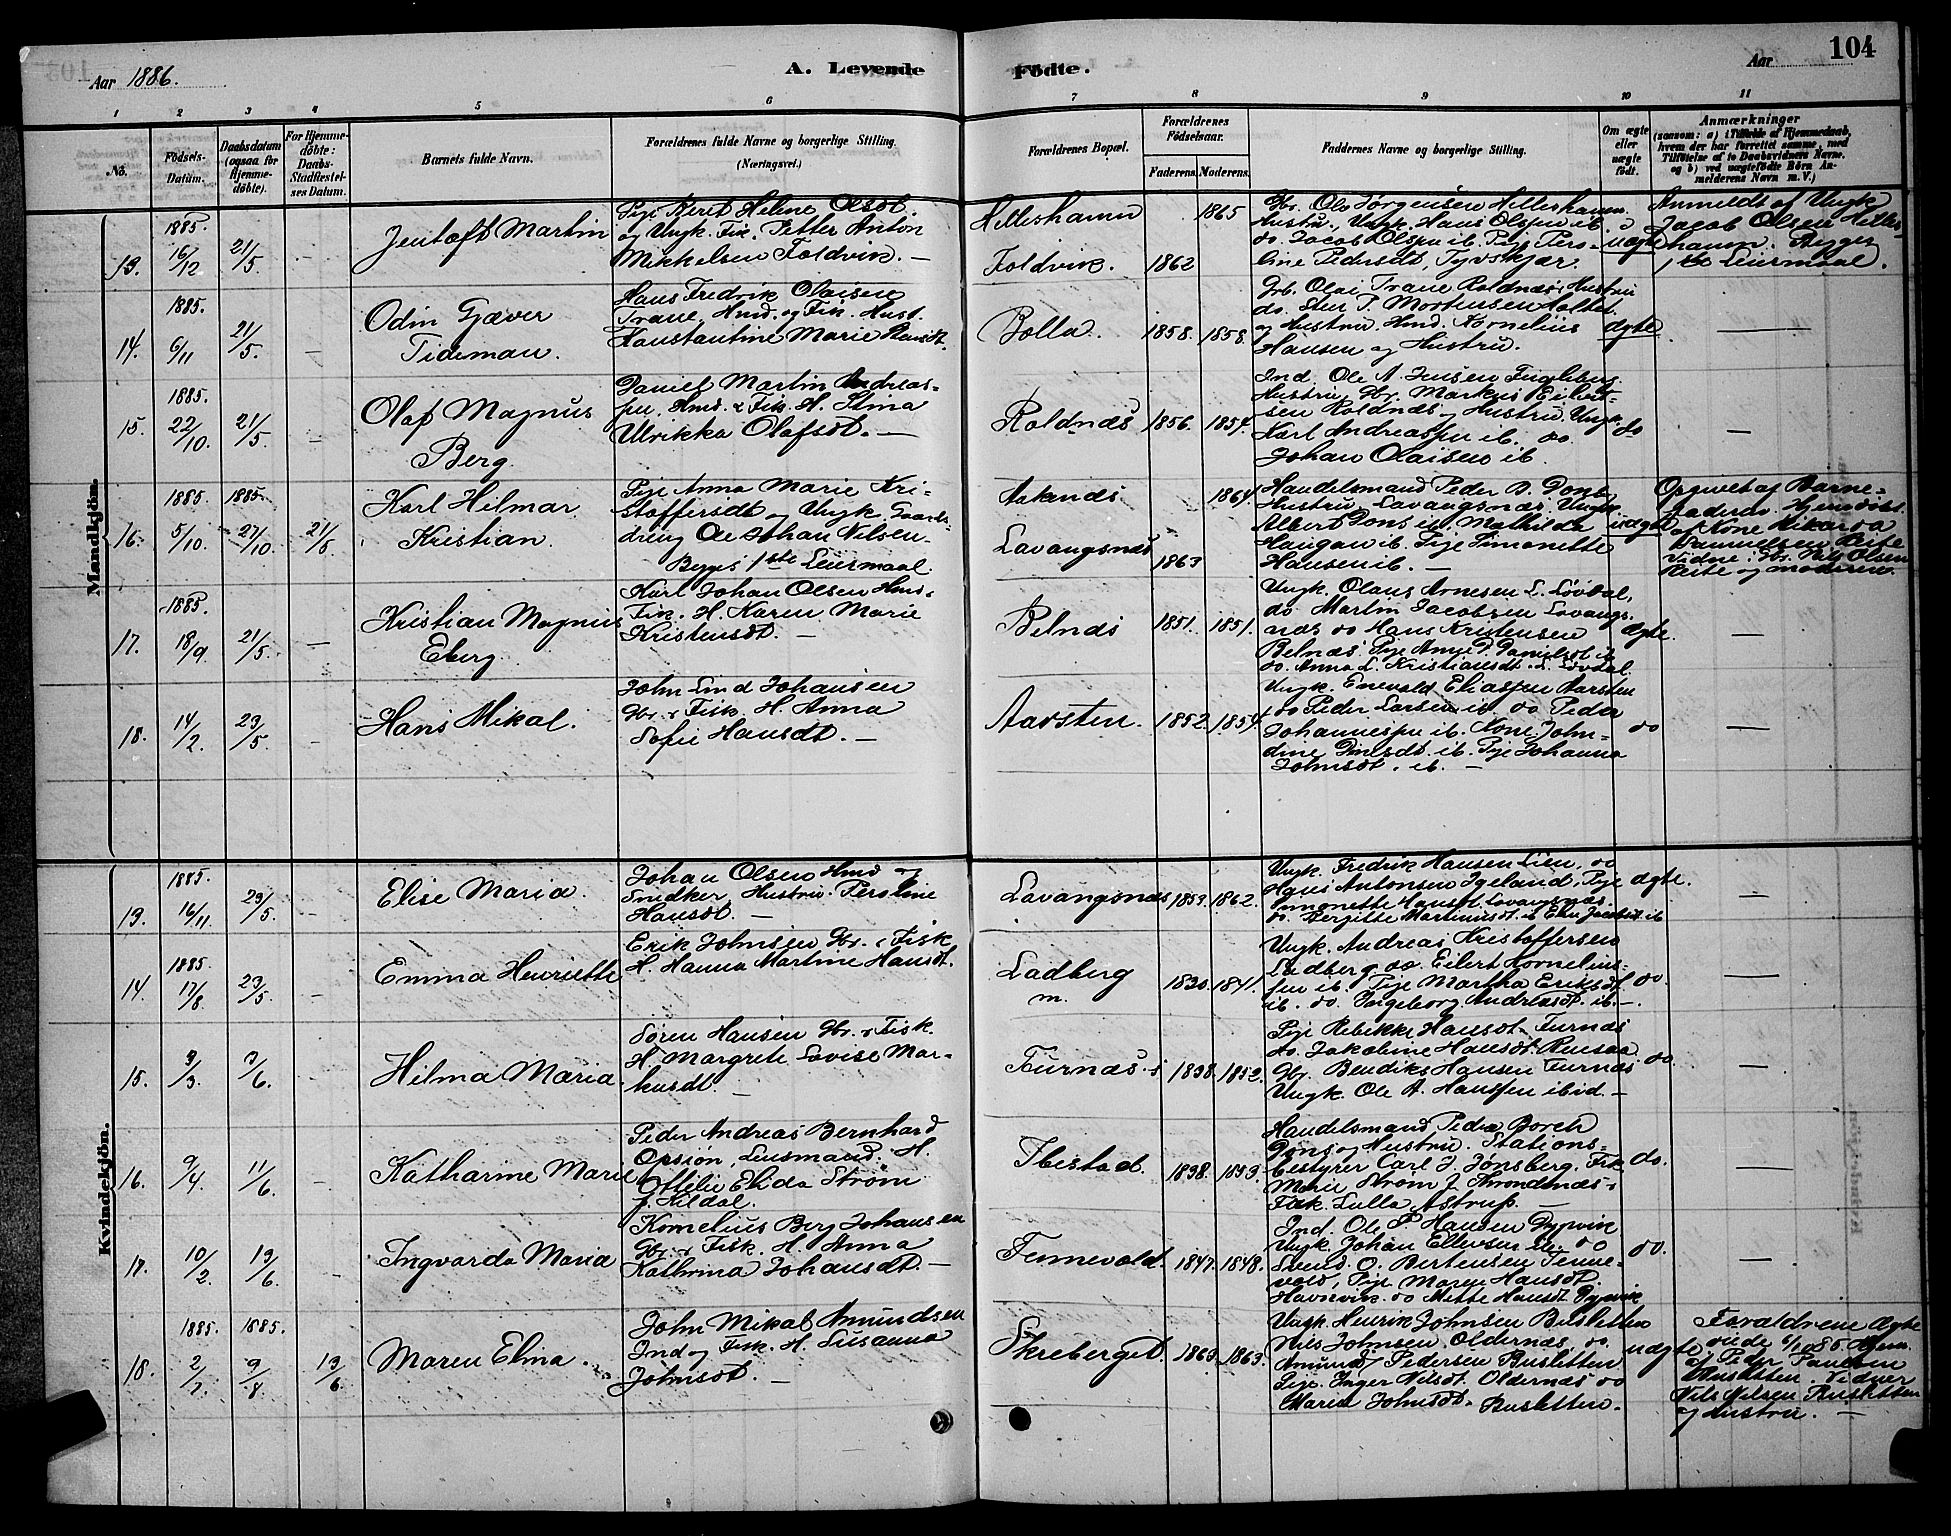 104
Aar 1886.
A. Levende
Födte.
Aar
1 2 3 4 5 6 7 8 9 10 11
No.
Födsels-Datum.
Daabsdatum (ogsaa for Hjemme-döbte).
For Hjemme-döbte: Daabs-Stadfæstel-ses Datum.
Barnets fulde Navn.
Forældrenes fulde Navne og borgerlige Stilling. (Næringsvei.)
Forældrenes Bopæl.
Forældrenes Födselsaar.
Faderens. Moderens.
Faddernes Navne og borgerlige Stilling.
Om ægte eller uægte födt.
Anmærkninger
(saasom: a) i Tilfælde af Hjemmedaab, hvem der har forrettet samme, med Tilföielse af to Daabsvidners Navne, og b) ved uægtefödte Börn Anmelderens Navn m. V.)
Mandkjön.
13. 1885. 16/12 21/5 - Jentoft Martin
Pige Beret Helene Olsdt.
og Ungk. Fisk. Petter Anton
Mikkelsen Foldvik. —
Hilleshamn 1865
Foldvik. 1862
Gbr. Ole Jørgensen Hilleshamn
Hustru, Ungk. Hans Olsen ib.
do. Jacob Olsen ib. Pige Pero-
line Pedersdt, Tyvskjær.
uægte
Anmeldt af Ungk
Jacob Olsen Hilles-
hamn. Begges
1ste Leiermaal.
14. 1885. 6/11 21/5 - Odin Gæver
Tideman.
Hans Fredrik Olaisen
Trane, Hmd. og Fisk. Hust.
Konstantine Marie Hansdt.
Bolla. 1858. 1858.
Gbr. Olai Trane Roldnæs, Hustru
do. P. Mortensen
og Hustru. Hmd. Kornelius
Hansen og Hustru.
ægte —
15. 1885. 22/10. 21/5. - Olaf Magnus
Berg.
Daniel Martin Andreas-
sen. Hmd. & Fisk. H. Stina
Ulrikka Olafsdt. —
Roldnæs 1856. 1854.
Ind. Ole A. Jensen
Hustru, Gbr. Markus Eilert-
sen Roldnæs og Hustru. Ungk.
Karl Andreassen ib. do
Johan Olaisen ib.
do —
16. 1885. 5/10. 1885. 27/10. 21/5 Karl Hilmar
Kristian.
Pige Anna Marie Kri-
stoffersdt og Ungk. Gaards-
dreng Ole Johan Nilsen
Begges 1ste Leiermaal.
Aaknæs 1864
Lavangsnæs 1863
Handelsmand Peder B. Dons,
Hustru, Lavangsnæs. Ungk.
Albert Dons ib. Mathilde
Haugan ib. Pige Simonette
Hansen ib. —
uægte
Opgivet af Barne-
faderen. Hjemdöbt
af Kone Mikarda
Danielsen
Vidne: Gbr. Nils Olsen
og moderen.
17. 1885. 18/9 21/5. — Kristian Magnus
Eberg.
Karl Johan Olsen Hmd.
Fisk. H. Karen Marie
Kristensdt. —
Belnæs 1851. 1851.
Ungk. Olaus Arnesen L. Løvdal,
do Martin Jacobsen Lavangs-
næs do Hans Kristensen
Belnæs. Pige Anne D. Danielsdt ib
do. Anna L. Kristiansdt L. Løvdal.
ægte. —
18. 14/2. 23/5. - Hans Mikal.
John Lind Johansen
Gbr. & Fisk. H. Anna
Sofie Hansdt. —
Aarsten. 1852. 1854.
Ungk. Enevold Eliassen Aarsten
do Peder Larsen ib do Peder
Johannessen ib. Kone John-
dine ib. Pige Johanna
Johnsdt. ib. —
do —
Kvindekjön.
13. 1885. 16/11. 23/5. - Elise Maria.
Johan Olsen Hmd og
Snedker, Hustru Peroline
Hansdt. —
Lavangsnæs 1853. 1862.
Ungk. Fredrik Hansen Lien, do
Hans Antonsen Igeland, Pige
Simonette Hansdt Lavangsnæs.
do. Bergitte Martinusdt ib Elen Jacobsdt ib
ægte. —
14. 1885. 17/8 23/5. - Emma Henriette
Erik Johnsen Gbr. & Fisk
H. Hanna Martine Hansdt.
Ladberg
m. 1830. 1841.
Ungk. Andreas Kristoffersen
Ladberg do. Eilert Kornelius-
sen ib Pige Martha Eriksdt
ib. do. Ingeborg Andreasdt. ib. —
do. —
15. 9/3. 3/6. - Hilma Maria.
Søren Hansen Gbr. & Fisk.
H. Margrete Lovise Mar-
kusdt —
Furnæs. 1838. 1852.
Pige Rebekka Hansdt. Furnæs
do. Jakobine Hansdt. Rensaa
Gbr. Bendiks Hansen Furnæs
Ungk. Ole A. Hanssen ibid. —
do. —
16. 9/4. 11/6. - Katharine Marie
Peder Andreas Bernhard
Opsiøn, Lensmand. H.
Ottilie Elida Strøm
f. Kildal.
Ibestad. 1838. 1853.
Handelsmand Peder Borch
Dons og Hustru. Stations-
bestyrer Carl J. Jønsberg. Frk
Marie Strøm, Trondenæs.
Frk. Lulla Astrup. —
do. —
17. 10/2. 13/6. - Ingvarda Maria
Kornelius Berg Johansen
Gbr. & Fisk. H. Anna
Kathrina Johansdt. —
Tennevold. 1847. 1848.
Ind. Ole P. Hansen Dypvik
Ungk. Johan Ellevsen do
Svend O. Bertensen Tenne-
vold, Pige Maren Hansdt.
Havnvik. do Mette Hansdt Dypvik
do. —
18. 1885. 2/7. 1885. 9/8 13/6. Maren Elina.
John Mikal Amundsen
Ind og Fisk. H. Susanna
Johnsdt. —
Skreberget. 1863. 1863.
Ungk Henrik Johnsen Busletten
Nils Johnsen, Oldernæs, do.
Amund Pedersen Busletten
Pige. Inger Nilsdt. Oldernæs do
Maria Johnsdt. Busletten.
uægte
Forældrene ægte-
viede 6/10 85. Hjem.
af Peder Paulsen
Busletten. Vidner
Nils Nilsen Busletten
og Hustru. —